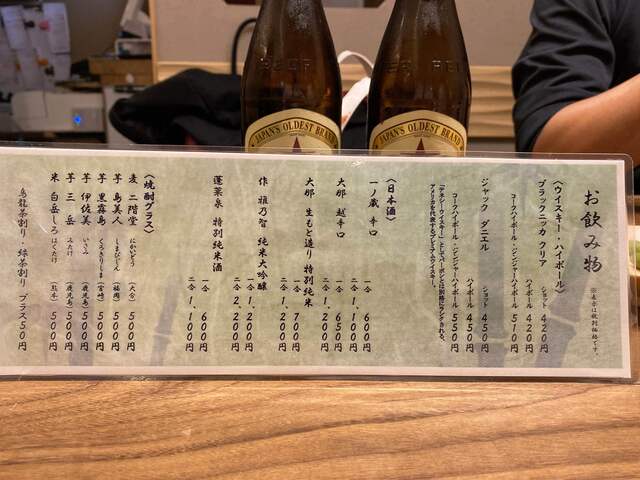 JAPAN'S OLDEST BRAND
JAPAN'S OLDEST BRAND
お飲み物
※表示は税別価格です。
〈ウイスキー・ハイボール〉
ブラックニッカ クリア
ショット 420円
ハイボール 420円
コークハイボール・ジンジャーハイボール 510円
ジャック ダニエル
ショット 450円
ハイボール 450円
コークハイボール・ジンジャーハイボール 550円
「テネシーウイスキー」としてバーボンとは別格にランクされる、
アメリカを代表するプレミアムウイスキー。
〈日本酒〉
一ノ蔵 辛口
一合 600円
二合 1,100円
大那 超辛口
一合 650円
二合 1,200円
大那 生もと造り 特別純米
一合 700円
二合 1,200円
作 雅乃智 純米大吟醸
一合 1,200円
二合 2,200円
蓬莱泉 特別純米酒
一合 600円
二合 1,100円
〈焼酎グラス〉
麦 二階堂 にかいどう (大分) 500円
芋 島美人 しまびじん 500円
芋 黒霧島 くろきりしま (宮崎) 500円
芋 伊佐美 いさみ (鹿児島) 500円
芋 三岳 みたけ (鹿児島) 500円
米 白岳しろ はくたけ (熊本) 500円
烏龍茶割り・緑茶割り プラス50円